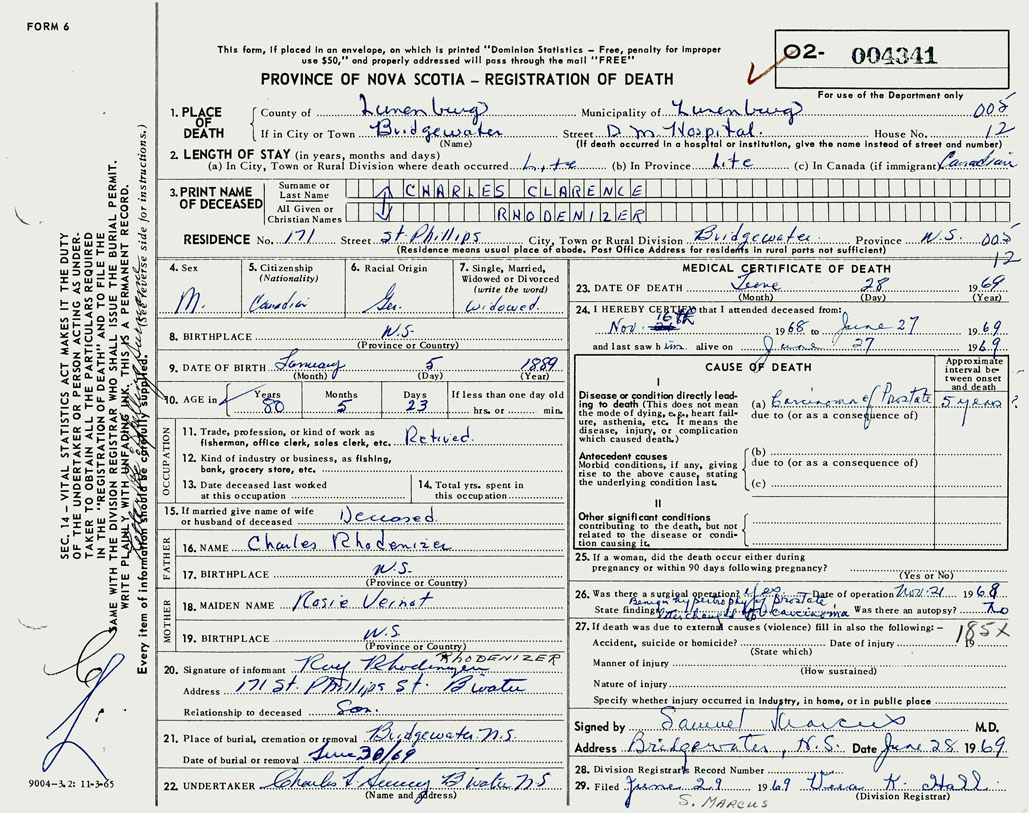 FORM 6
This form, if placed in an envelope, on which is printed "Dominion Statistics – Free, penalty for improper
use $50," and properly addressed will pass through the mail "FREE"
PROVINCE OF NOVA SCOTIA – REGISTRATION OF DEATH
02- 004341
For use of the Department only
1. PLACE OF DEATH
County of Lunenburg Municipality of Lunenburg 005
If in City or Town Bridgewater Street D.M. Hospital. House No. 12
(Name) (If death occurred in a hospital or institution, give the name instead of street and number)
2. LENGTH OF STAY (in years, months and days)
(a) In City, Town or Rural Division where death occurred Life (b) In Province Life (c) In Canada (if immigrant) Canadian
3. PRINT NAME OF DECEASED
Surname or Last Name CHARLES CLARENCE
All Given or Christian Names RHODENIZER
RESIDENCE No. 171 Street St Phillips City, Town or Rural Division Bridgewater Province N.S. 005
(Residence means usual place of abode. Post Office Address for residents in rural parts not sufficient) 12
4. Sex M.
5. Citizenship (Nationality) Canadian
6. Racial Origin Ger.
7. Single, Married, Widowed or Divorced (write the word) Widowed.
8. BIRTHPLACE N.S.
(Province or Country)
9. DATE OF BIRTH January 5 1889
(Month) (Day) (Year)
10. AGE in Years 80 Months 5 Days 23 If less than one day old hrs. or min.
OCCUPATION
11. Trade, profession, or kind of work as fisherman, office clerk, sales clerk, etc. Retired.
12. Kind of industry or business, as fishing, bank, grocery store, etc.
13. Date deceased last worked at this occupation
14. Total yrs. spent in this occupation
15. If married give name of wife or husband of deceased Deceased.
FATHER
16. NAME Charles Rhodenizer
17. BIRTHPLACE N.S.
(Province or Country)
MOTHER
18. MAIDEN NAME Rosie Veinot
19. BIRTHPLACE N.S.
(Province or Country)
20. Signature of informant Roy Rhodenizer RHODENIZER
Address 171 St. Phillips St. B'water
Relationship to deceased Son.
21. Place of burial, cremation or removal Bridgewater N.S.
Date of burial or removal June 30/69
22. UNDERTAKER Charles B'water N.S
(Name and address)
MEDICAL CERTIFICATE OF DEATH
23. DATE OF DEATH June 28 1969
(Month) (Day) (Year)
24. I HEREBY CERTIFY that I attended deceased from:
Nov. 16th 1968 to June 27 1969
and last saw him alive on June 27 1969
CAUSE OF DEATH
Approximate interval between onset and death
I
Disease or condition directly leading to death (This does not mean the mode of dying, e.g., heart failure, asthenia, etc. It means the disease, injury, or complication which caused death.)
(a) Carcinoma of Prostate 5 years ?
due to (or as a consequence of)
Antecedent causes
Morbid conditions, if any, giving rise to the above cause, stating the underlying condition last.
(b)
due to (or as a consequence of)
(c)
II
Other significant conditions contributing to the death, but not related to the disease or condition causing it.
25. If a woman, did the death occur either during pregnancy or within 90 days following pregnancy?
(Yes or No)
26. Was there a surgical operation? yes Date of operation Nov. 21 1968
State findings Benign hypertrophy of prostate carcinoma Was there an autopsy? no
27. If death was due to external causes (violence) fill in also the following: – 185X
Accident, suicide or homicide? Date of injury 19
(State which)
Manner of injury
(How sustained)
Nature of injury
Specify whether injury occurred in industry, in home, or in public place
Signed by Samuel Marcus M.D.
Address Bridgewater, N.S. Date June 28 1969
28. Division Registrar's Record Number
29. Filed June 29 1969 Vera K. Hall
(Division Registrar)
S. MARCUS
SEC. 14 – VITAL STATISTICS ACT MAKES IT THE DUTY
OF THE UNDERTAKER OR PERSON ACTING AS UNDER-
TAKER TO OBTAIN ALL THE PARTICULARS REQUIRED
IN THE "REGISTRATION OF DEATH" AND FILE THE
SAME WITH THE DIVISION REGISTRAR WHO SHALL ISSUE THE BURIAL PERMIT.
WRITE PLAINLY WITH UNFADING INK. THIS IS A PERMANENT RECORD.
Every item of information should be carefully supplied. (See reverse side for instructions.)
9004-3.2: 11-3-65